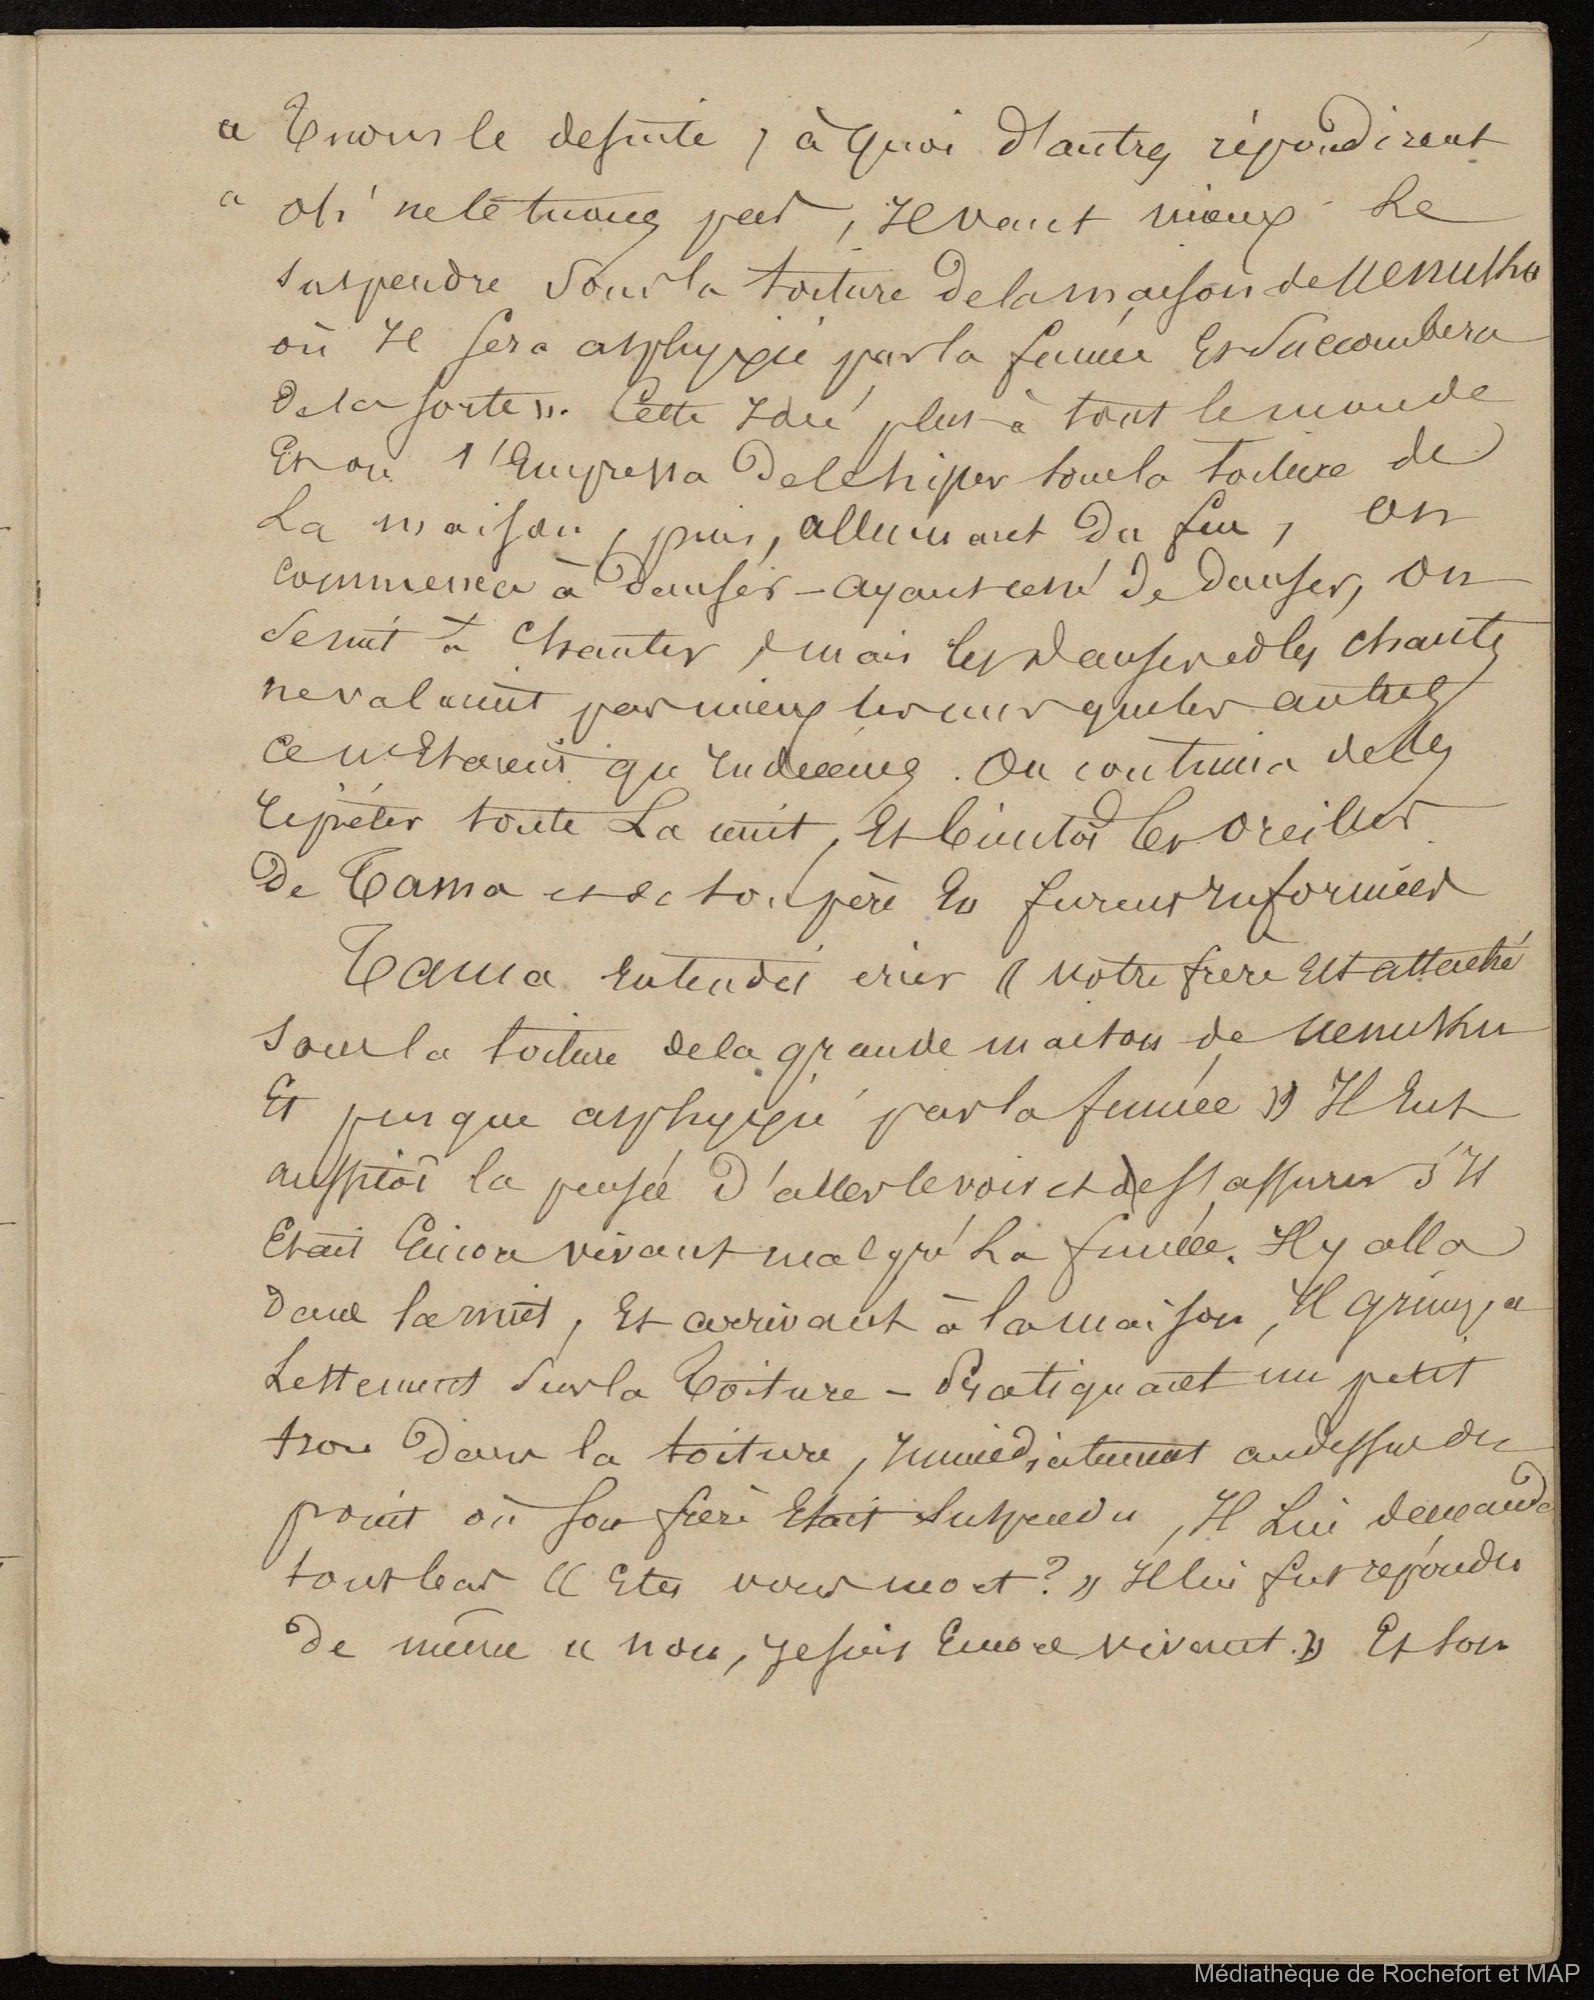 « Tuons le desuite, à quoi d'autres répondirent
« oh! ne le tuons pas, Il vaut mieux Le
suspendre sous la toiture de la maison de Uenuku
où Il sera asphyxié par la fumée Et Succombera
de la sorte ». Cette Idée plut à tout le monde
Et on s'Empressa de le hisser sous la toiture de
La maison, puis, allumant du feu, on
commença à danser – ayant cessé de danser, on
se mit à chanter, mais les danses et les chants
ne valaient pas mieux les uns que les autres
ce n'Etaient qu' . On continua de les
répéter toute La nuit, Et bientôt les oreilles
de Tama et de son père En furent Informées
Tama entendit crier « notre frère Est attaché
sous la toiture de la grande maison de Uenuku
Et presque asphyxié par la fumée » Il Eut
aussitôt la pensée d'aller le voir et de s'assurer s'Il
Etait Encore vivant malgré La fumée. Il y alla
dans la nuit, Et arrivant à la maison, Il grimpa
Lestement sur la Toiture – Pratiquant un petit
trou dans la toiture, Immédiatement au dessus du
point où son frère Etait Suspendu, Il Lui demanda
tout bas « Etes vous mort? » Il lui fut répondu
de même « non, Je suis Encore vivant. » Et son
Médiathèque de Rochefort et MAP